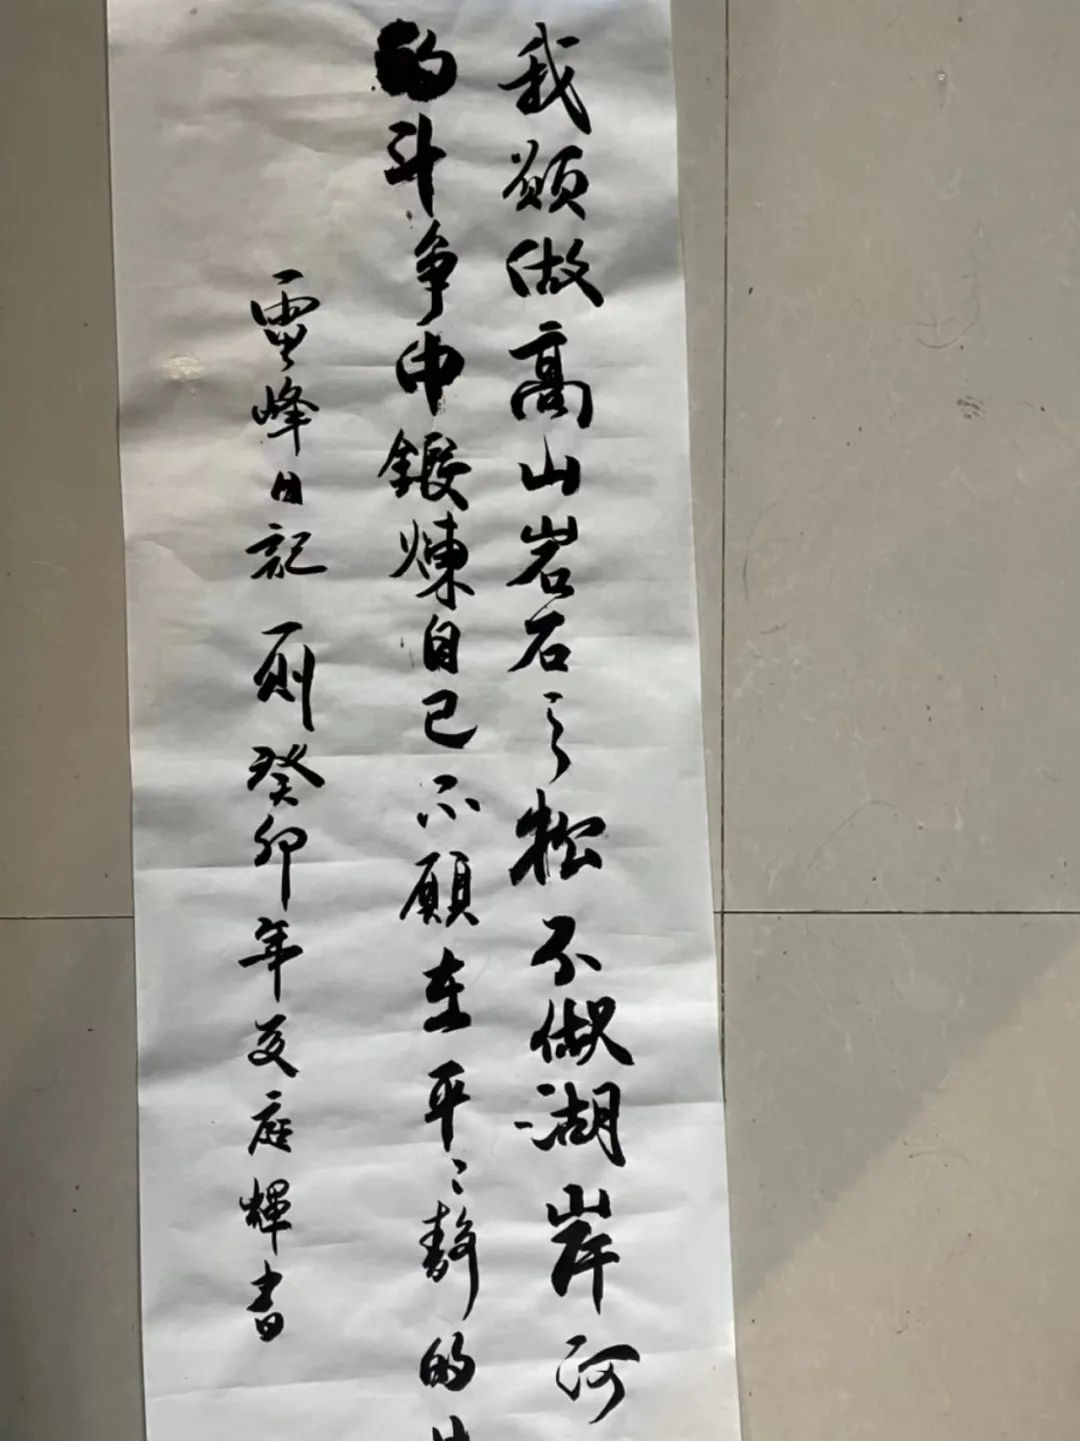 我愿做高山岩石之松不做湖岸河
的斗争中锻煉自己不愿在平〻静的
雷峰日記一则癸卯年夏庭輝書